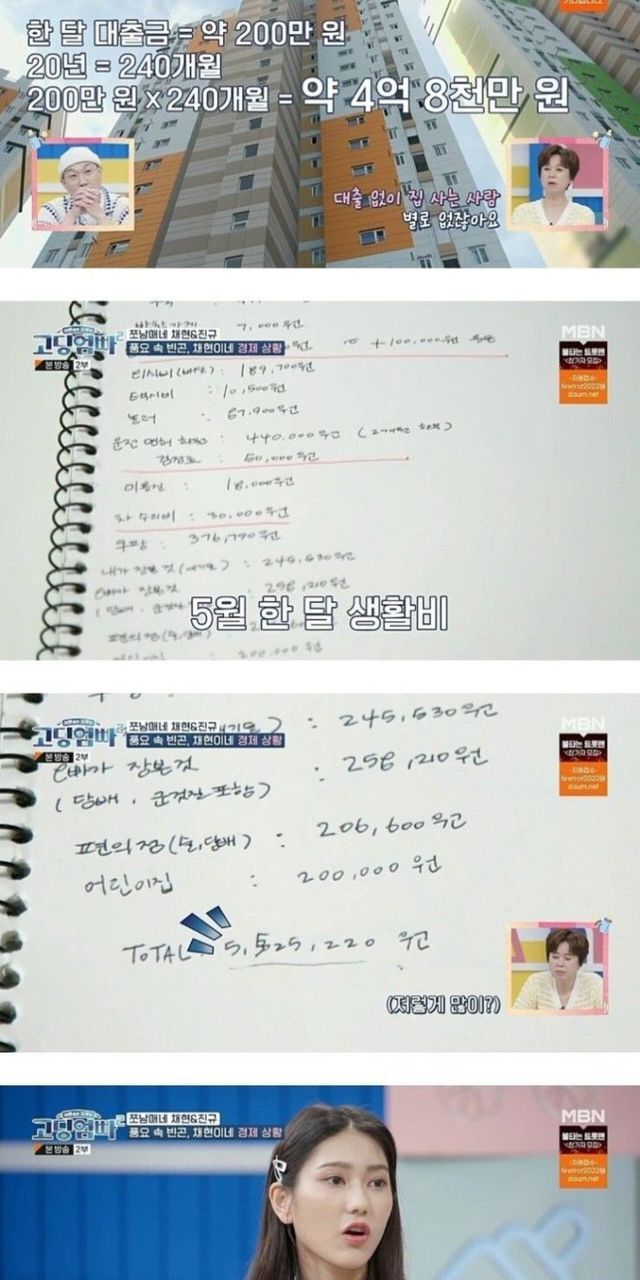 한 달 대출금 = 약 200만 원
20년 = 240개월
200만 원 X 240개월 = 약 4억 8천만 원
대출 없이 집 사는 사람
별로 없잖아요
고딩엄빠2
쪼남매네 채현&진규
풍요 속 빈곤, 채현이네 경제 상황
본 방송 2부
MBN
불타는 트롯맨
<참가자 모집>
-지원접수-
firetrot2022@
daum.net
7,000원
+100,000원
189,700원
: 10,500원
: 67,900원
운전 면허 학원 : 440,000원
60,000원
미용실 : 18,000원
차 수리비 : 30,000원
쿠팡 : 376,790원
내가 장본 것 : 245,530원
오빠가 장본것 : 258,210원
편의점(술,담배)
200,000원
5월 한 달 생활비
고딩엄빠2
쪼남매네 채현&진규
풍요 속 빈곤, 채현이네 경제 상황
본 방송 2부
MBN
불타는 트롯맨
<참가자 모집>
-지원접수-
firetrot2022@
daum.net
: 245,530원
오빠가 장본것 : 258,210원
(담배, 군것질 포함)
편의점(술,담배) : 206,600원
어린이집 : 200,000원
TOTAL : 5,525,220원
(저렇게 많이?)
고딩엄빠2
쪼남매네 채현&진규
풍요 속 빈곤, 채현이네 경제 상황
본 방송 2부
MBN
불타는 트롯맨
<참가자 모집>
-지원접수-
firetrot2022@
daum.net